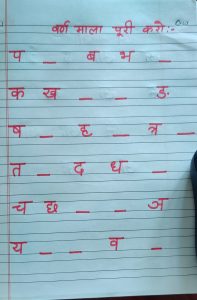 वर्ण माला पूरी करो:-
प _ ब भ _
क ख _ _ ङ
ष _ ह _ त्र _
त _ द ध _
च छ _ _ ञ
य _ _ व _